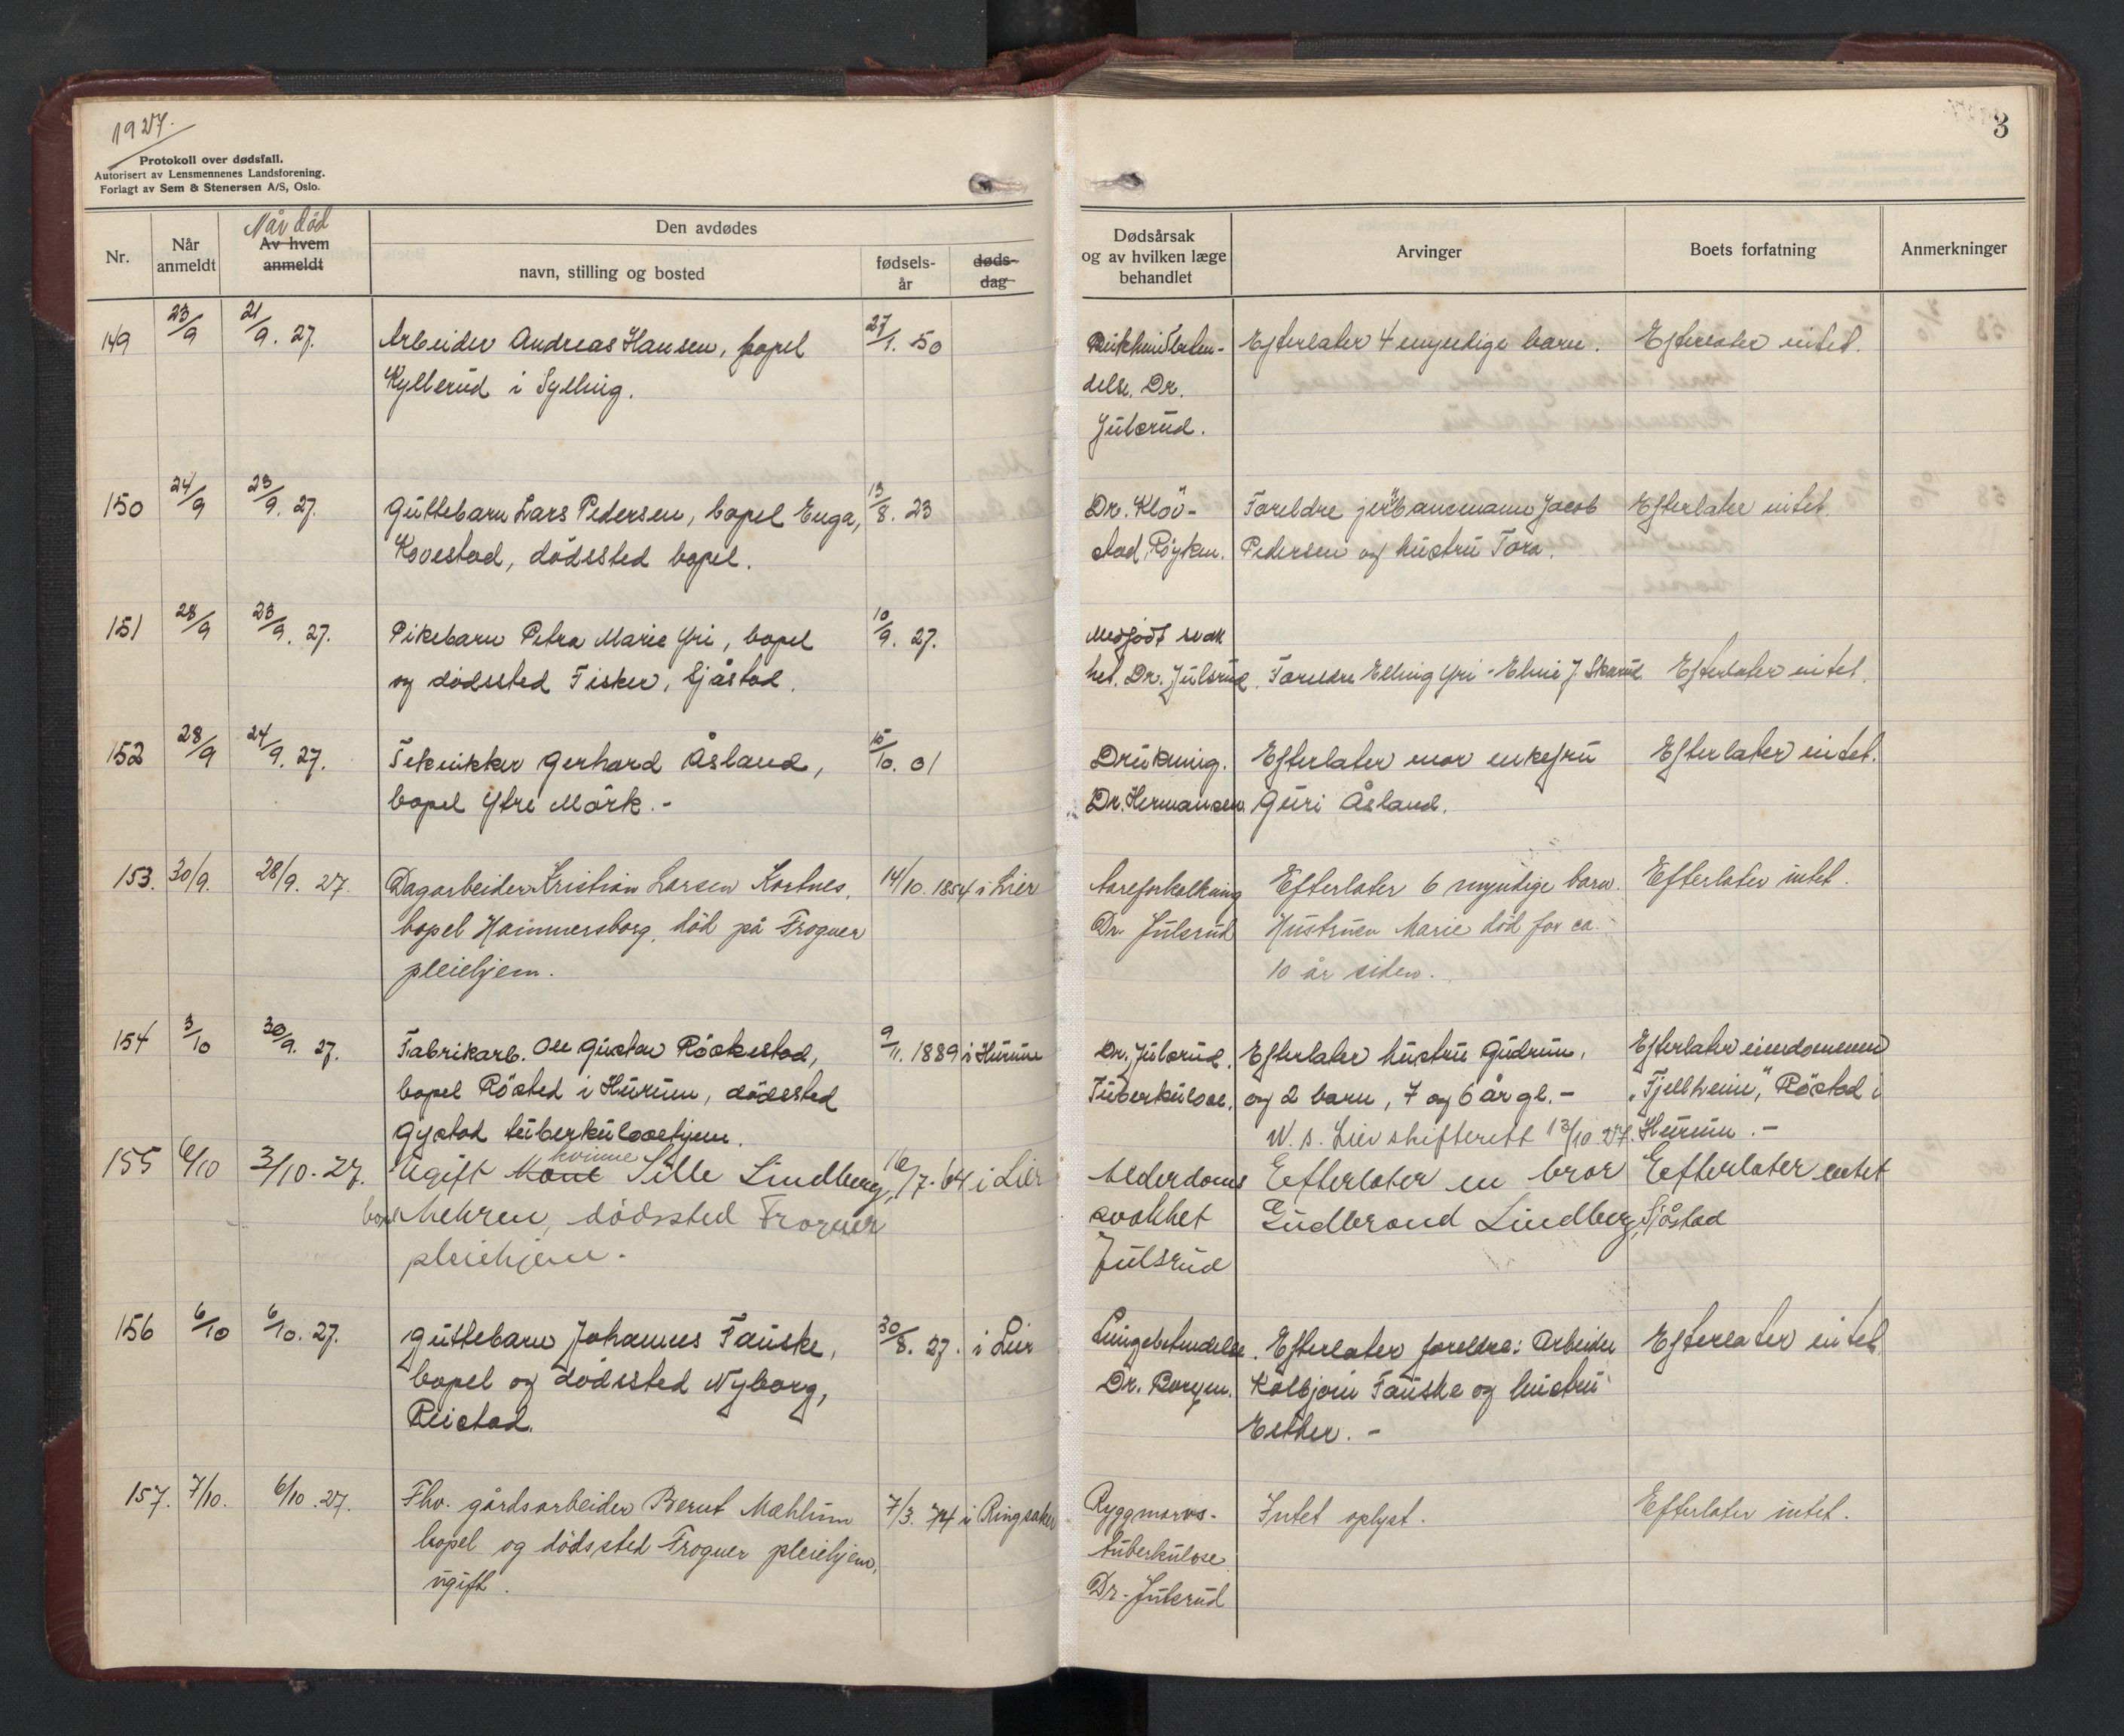 1927.
Protokoll over dødsfall.
Autorisert av Lensmennenes Landsforening.
Forlagt av Sem & Stenersen A/S, Oslo.
3
Nr.
Når anmeldt
Når død
Av hvem anmeldt
Den avdødes
navn, stilling og bosted
fødsels-år
døds-dag
Dødsårsak og av hvilken læge behandlet
Arvinger
Boets forfatning
Anmerkninger
149 23/9 21/9. 27. Arbeider Andreas Hansen, bopel 27/1. 50
Kylberud i Sylling.
delse. Dr.
Julsrud.
Efterlater 4 myndige barn. Efterlater intet.
150 24/9 23/9. 27. Guttebarn Lars Pedersen, bopel Enga, 13/8. 23
Kovestad, dödssted bopel.
Dr. Klöv- Foreldre jernbanemann Jacob Efterlater intet.
stad, Röyken. Pedersen og hustru Tora.
151 28/9 23/9. 27. Pikebarn Petra Marie Yri, bopel 10/9. 27.
og dödssted Fisker, Sjåstad.
Medfödt svak
het. Dr. Julsrud. Foreldre Elling Yri - Eline J. Skarud Efterlater intet.
152 28/9 24/9. 27. Tekniker Gerhard Åsland, 15/10. 01
bopel Ytre Mörk. -
Drukning. Efterlater mor enkefru Efterlater intet.
Dr. Hermansen. Guri Åsland.
153. 30/9. 28/9. 27. Dagarbeider Kristian Larsen Kortnes, 14/10. 1854 i Lier
bopel Hammersborg, död på Frogner
pleiehjem.
Åreforkalkning Efterlater 6 myndige barn. Efterlater intet.
Dr. Julsrud Hustruen Marie död for ca.
10 år siden.
154 3/10 30/9. 27. Fabrikarb. Ole Gustav Röskestad, 9/11. 1889 i Hurum
bopel Rösted i Hurum, dödssted
Gystad tuberkulosehjem.
Dr. Julsrud. Efterlater hustru Gudrun, Efterlater eiendommen
Tuberkulose. og 2 barn, 7 og 6 år gl. - "Fjellheim", Röstad i
U. s. Lier skifterett 13/10 27. Hurum. -
155 6/10 3/10. 27. Ugift Mant kvinne Sille Lindberg, 16/7. 64 i Lier
bopel Mehren, dödssted Frogner
pleiehjem.
Alderdoms Efterlater en bror Efterlater intet
svakhet Gudbrand Lindberg, Sjåstad
Julsrud
156 6/10 6/10. 27. Guttebarn Johannes Fauske, 30/8. 27. i Lier
bopel og dödssted Nyborg,
Reistad.
Lungebetendelse. Efterlater foreldre: Arbeider Efterlater intet
Dr. Borgen. Kolbjörn Fauske og hustru
Esther. -
157. 7/10. 6/10. 27. Fhv. gårdsarbeider Bernt Mæhlum 7/3. 74 i Ringsaker
bopel og dödssted Frogner pleiehjem,
ugift.
Ryggmarvs- Intet oplyst. Efterlater intet.
tuberkulose
Dr. Julsrud